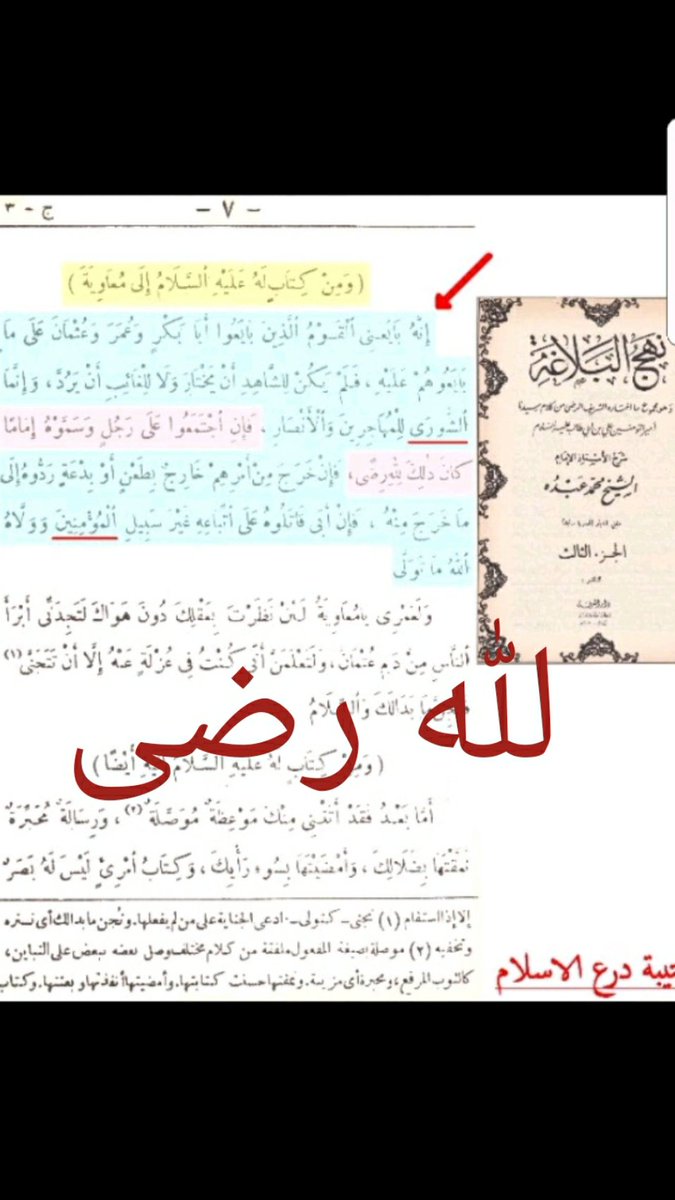 ج - ٣
- ٧ -
( وَمِنْ كِتَابٍ لَهُ عَلَيْهِ ٱلسَّلَامُ إِلَى مُعَاوِيَةَ )
إِنَّهُ بَايَعَنِى ٱلْقَوْمُ ٱلَّذِينَ بَايَعُوا أَبَا بَكْرٍ وَعُمَرَ وَعُثْمَانَ عَلَى مَا
بَايَعُوهُمْ عَلَيْهِ ، فَلَمْ يَكُنْ لِلشَّاهِدِ أَنْ يَخْتَارَ وَلَا لِلْغَائِبِ أَنْ يَرُدَّ ، وَإِنَّمَا
ٱلشُّورَى لِلْمُهَاجِرِينَ وَٱلْأَنْصَارِ ، فَإِنِ ٱجْتَمَعُوا عَلَى رَجُلٍ وَسَمَّوْهُ إِمَامًا
كَانَ ذٰلِكَ لِلّٰهِ رِضًى ، فَإِنْ خَرَجَ مِنْ أَمْرِهِمْ خَارِجٌ بِطَعْنٍ أَوْ بِدْعَةٍ رَدُّوهُ إِلَى
مَا خَرَجَ مِنْهُ ، فَإِنْ أَبَى قَاتَلُوهُ عَلَى ٱتِّبَاعِهِ غَيْرَ سَبِيلِ ٱلْمُؤْمِنِينَ وَوَلَّاهُ
ٱللّٰهُ مَا تَوَلَّى
وَلَعَمْرِى يَا مُعَاوِيَةُ لَئِنْ نَظَرْتَ بِعَقْلِكَ دُونَ هَوَاكَ لَتَجِدَنِّى أَبْرَأَ
ٱلنَّاسِ مِنْ دَمِ عُثْمَانَ ، وَلَتَعْلَمَنَّ أَنِّى كُنْتُ فِى عُزْلَةٍ عَنْهُ إِلَّا أَنْ تَتَجَنَّى (١)
مَا بَدَا لَكَ وَٱلسَّلَامُ
لله رضى
( وَمِنْ كِتَابٍ لَهُ عَلَيْهِ ٱلسَّلَامُ إِلَيْهِ أَيْضًا )
أَمَّا بَعْدُ فَقَدْ أَتَتْنِى مِنْكَ مَوْعِظَةٌ مُوَصَّلَةٌ (٢) ، وَرِسَالَةٌ مُحَبَّرَةٌ
نَمَّقْتَهَا بِضَلَالِكَ ، وَأَمْضَيْتَهَا بِسُوءِ رَأْيِكَ ، وَكِتَابُ ٱمْرِئٍ لَيْسَ لَهُ بَصَرٌ
(١) تجنى - كتولى - ادعى الجناية على من لم يفعلها . وتجن ما بدا لك أى تستره
وتخفيه (٢) موصلة بصيغة المفعول ملفقة من كلام مختلف وصل بعضه ببعض على التباين ،
كالثوب المرقع ، ومحبرة أى مزينة . ونمقتها حسنت كتابتها . وأمضيتها أنفذتها وبعثتها . وكتاب
نهج البلاغة
وهو مجموع ما اختاره الشريف الرضى من كلام سيدنا
أمير المؤمنين على بن أبى طالب عليه السلام
شرح الأستاذ الإمام
الشيخ محمد عبده
الجزء الثالث
درع الاسلام